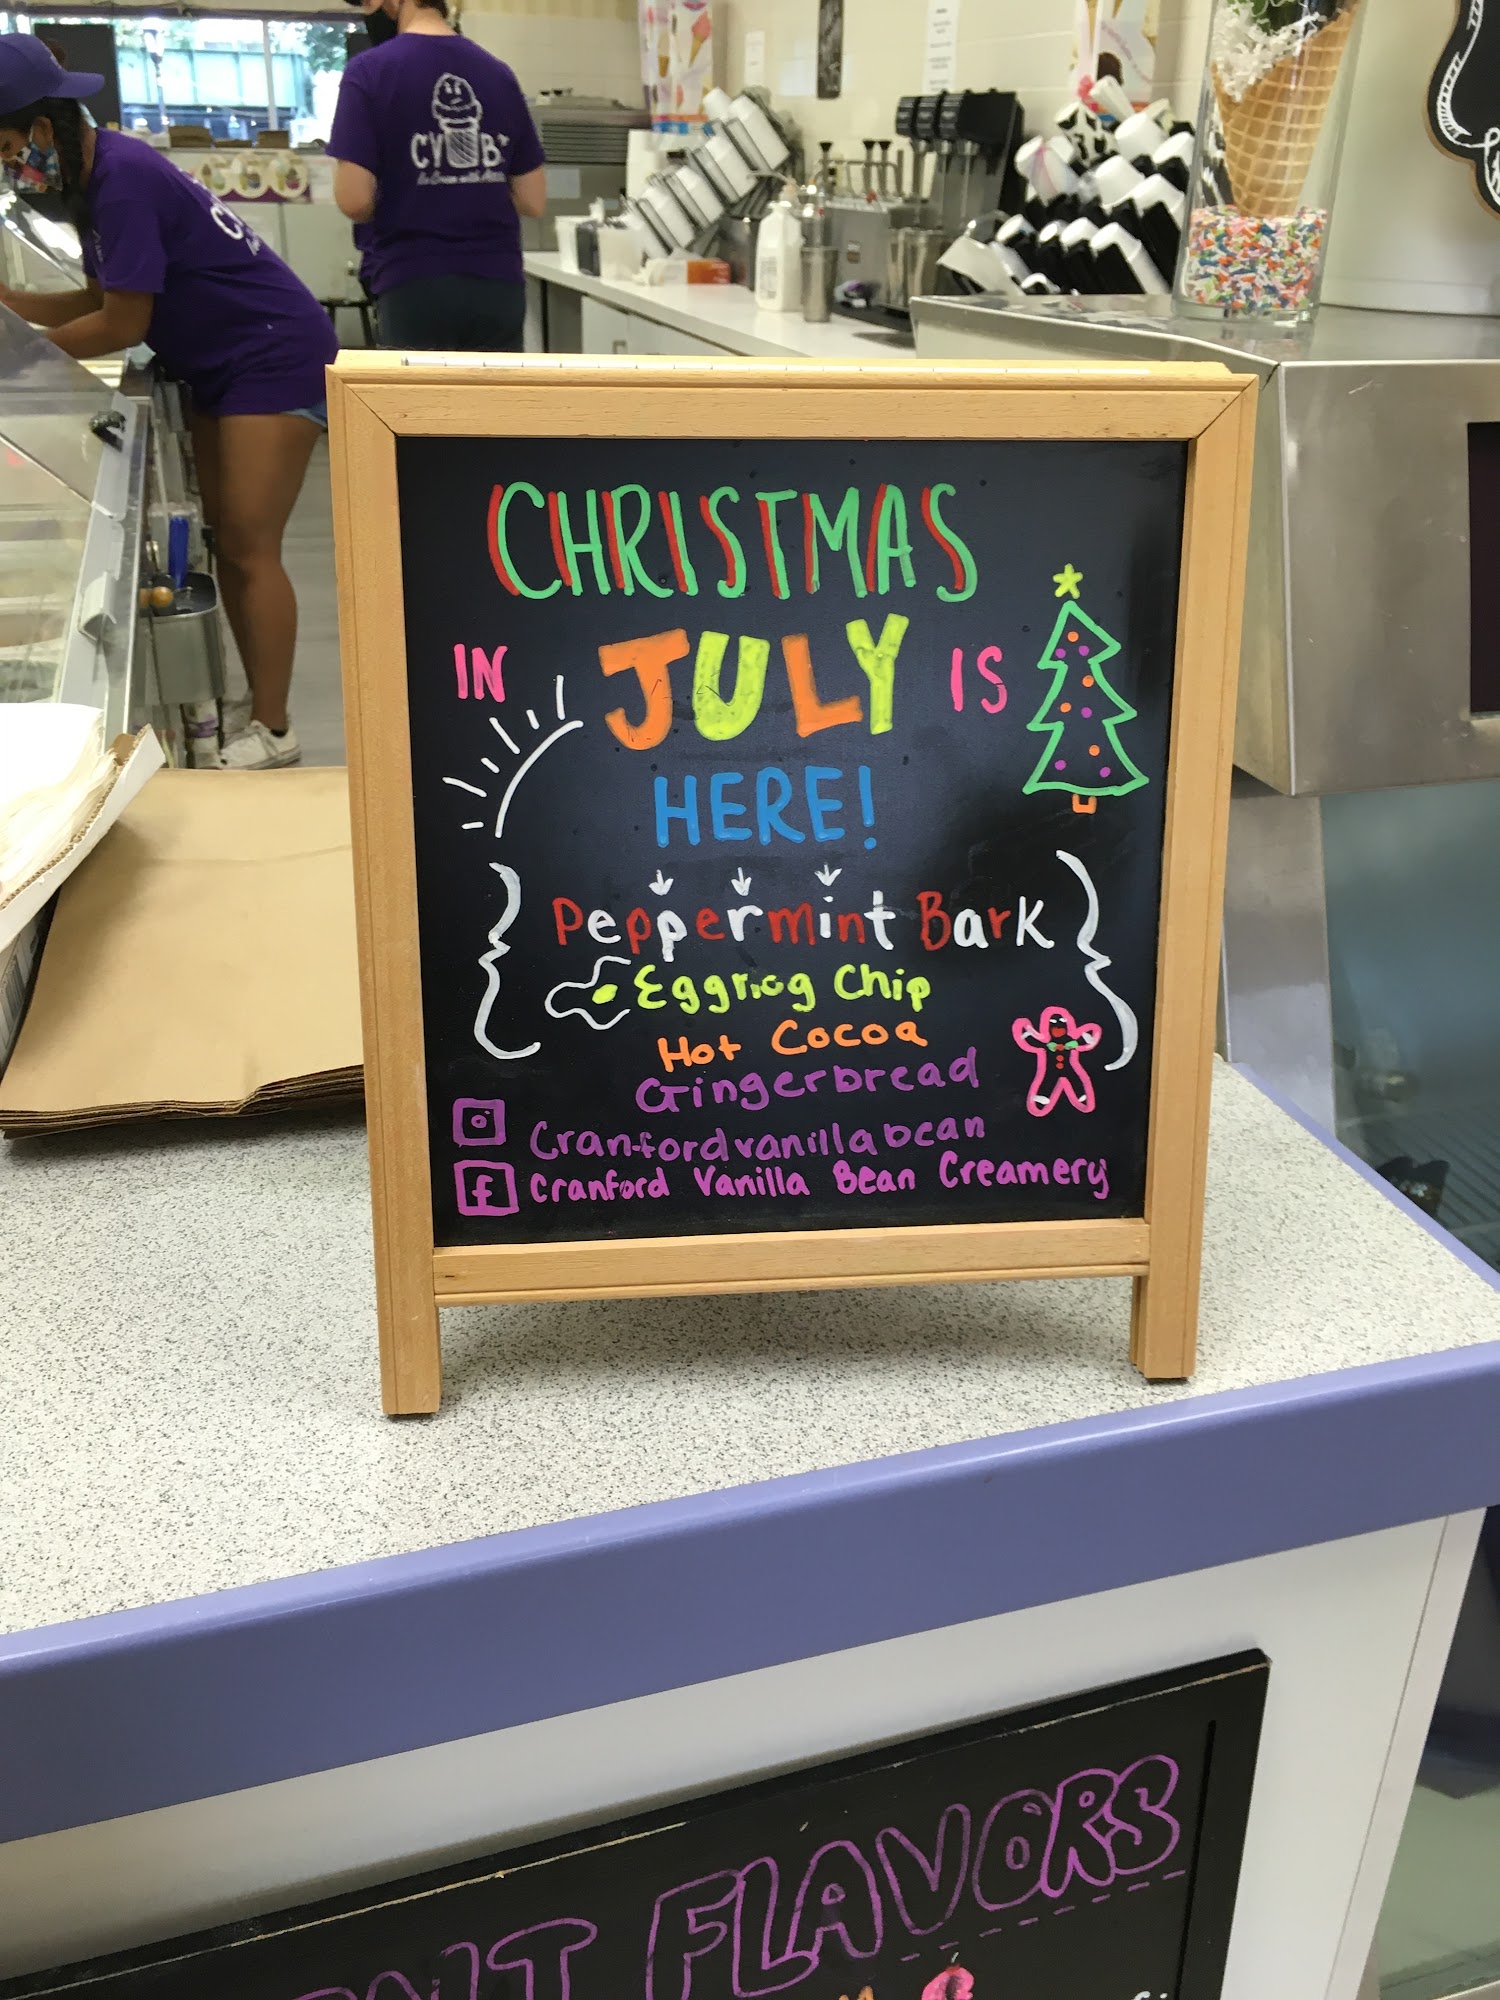 CHRISTMAS
IN JULY IS
HERE!
Peppermint Bark
Eggnog Chip
Hot Cocoa
Gingerbread
Cranfordvanillabean
f Cranford Vanilla Bean Creamery
FLAVORS
CVB